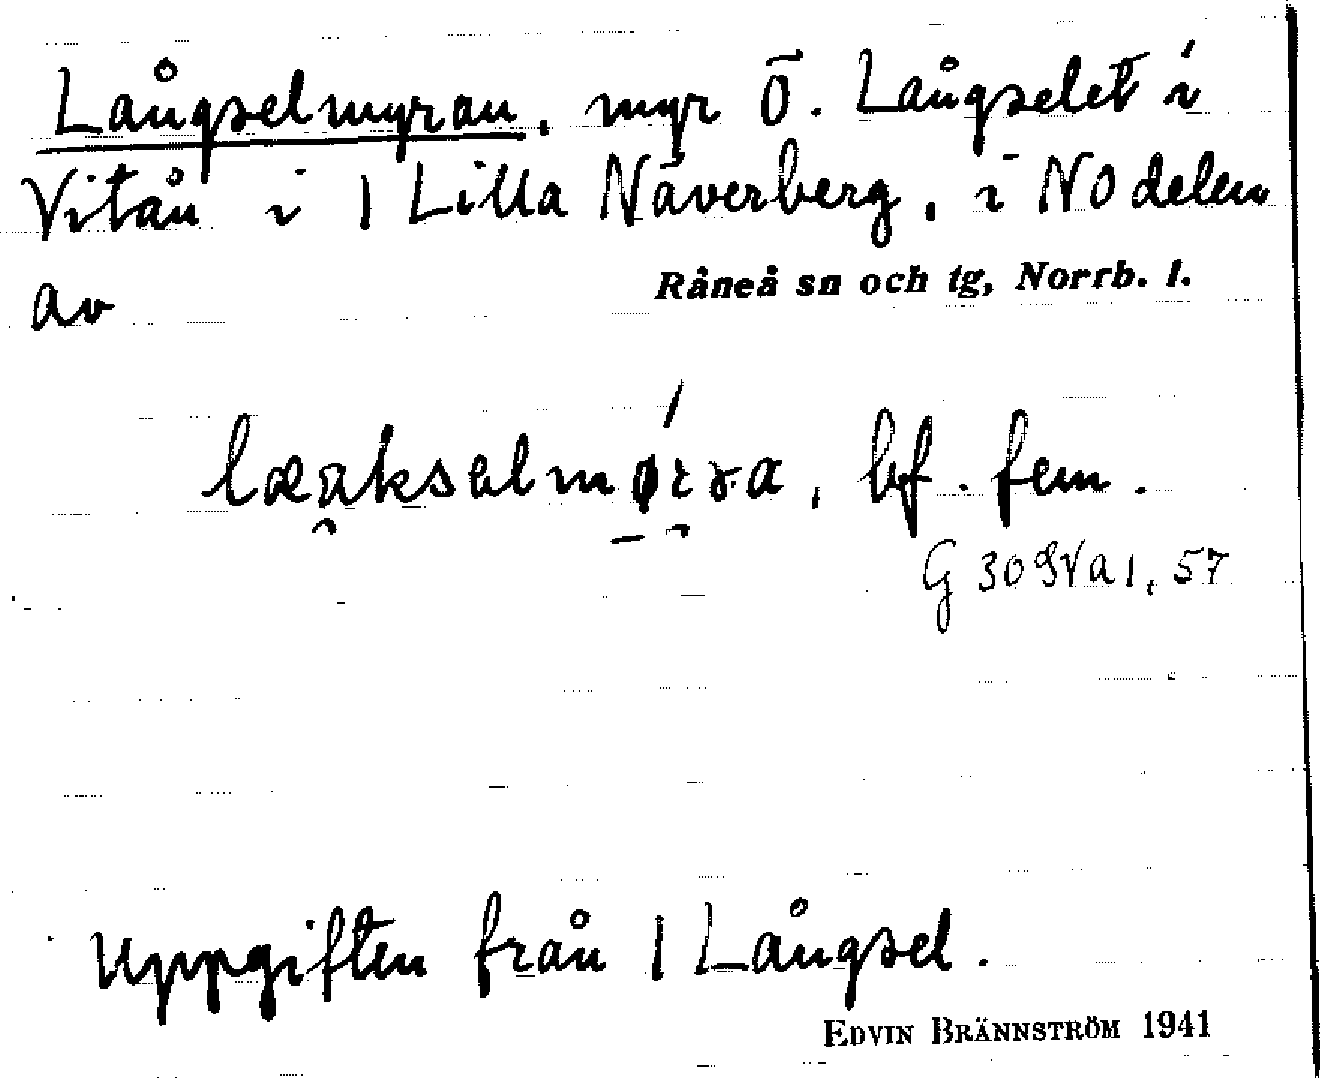 Långselmyran, myr Ö. Långselet i
Vitån i 1 Lilla Näverberg, i NO delen
av
Råneå sn och tg, Norrb. l.
bf. fem.
G 30 SVa 1, 57
Uppgiften från 1 Långsel.
EDVIN BRÄNNSTRÖM 1941